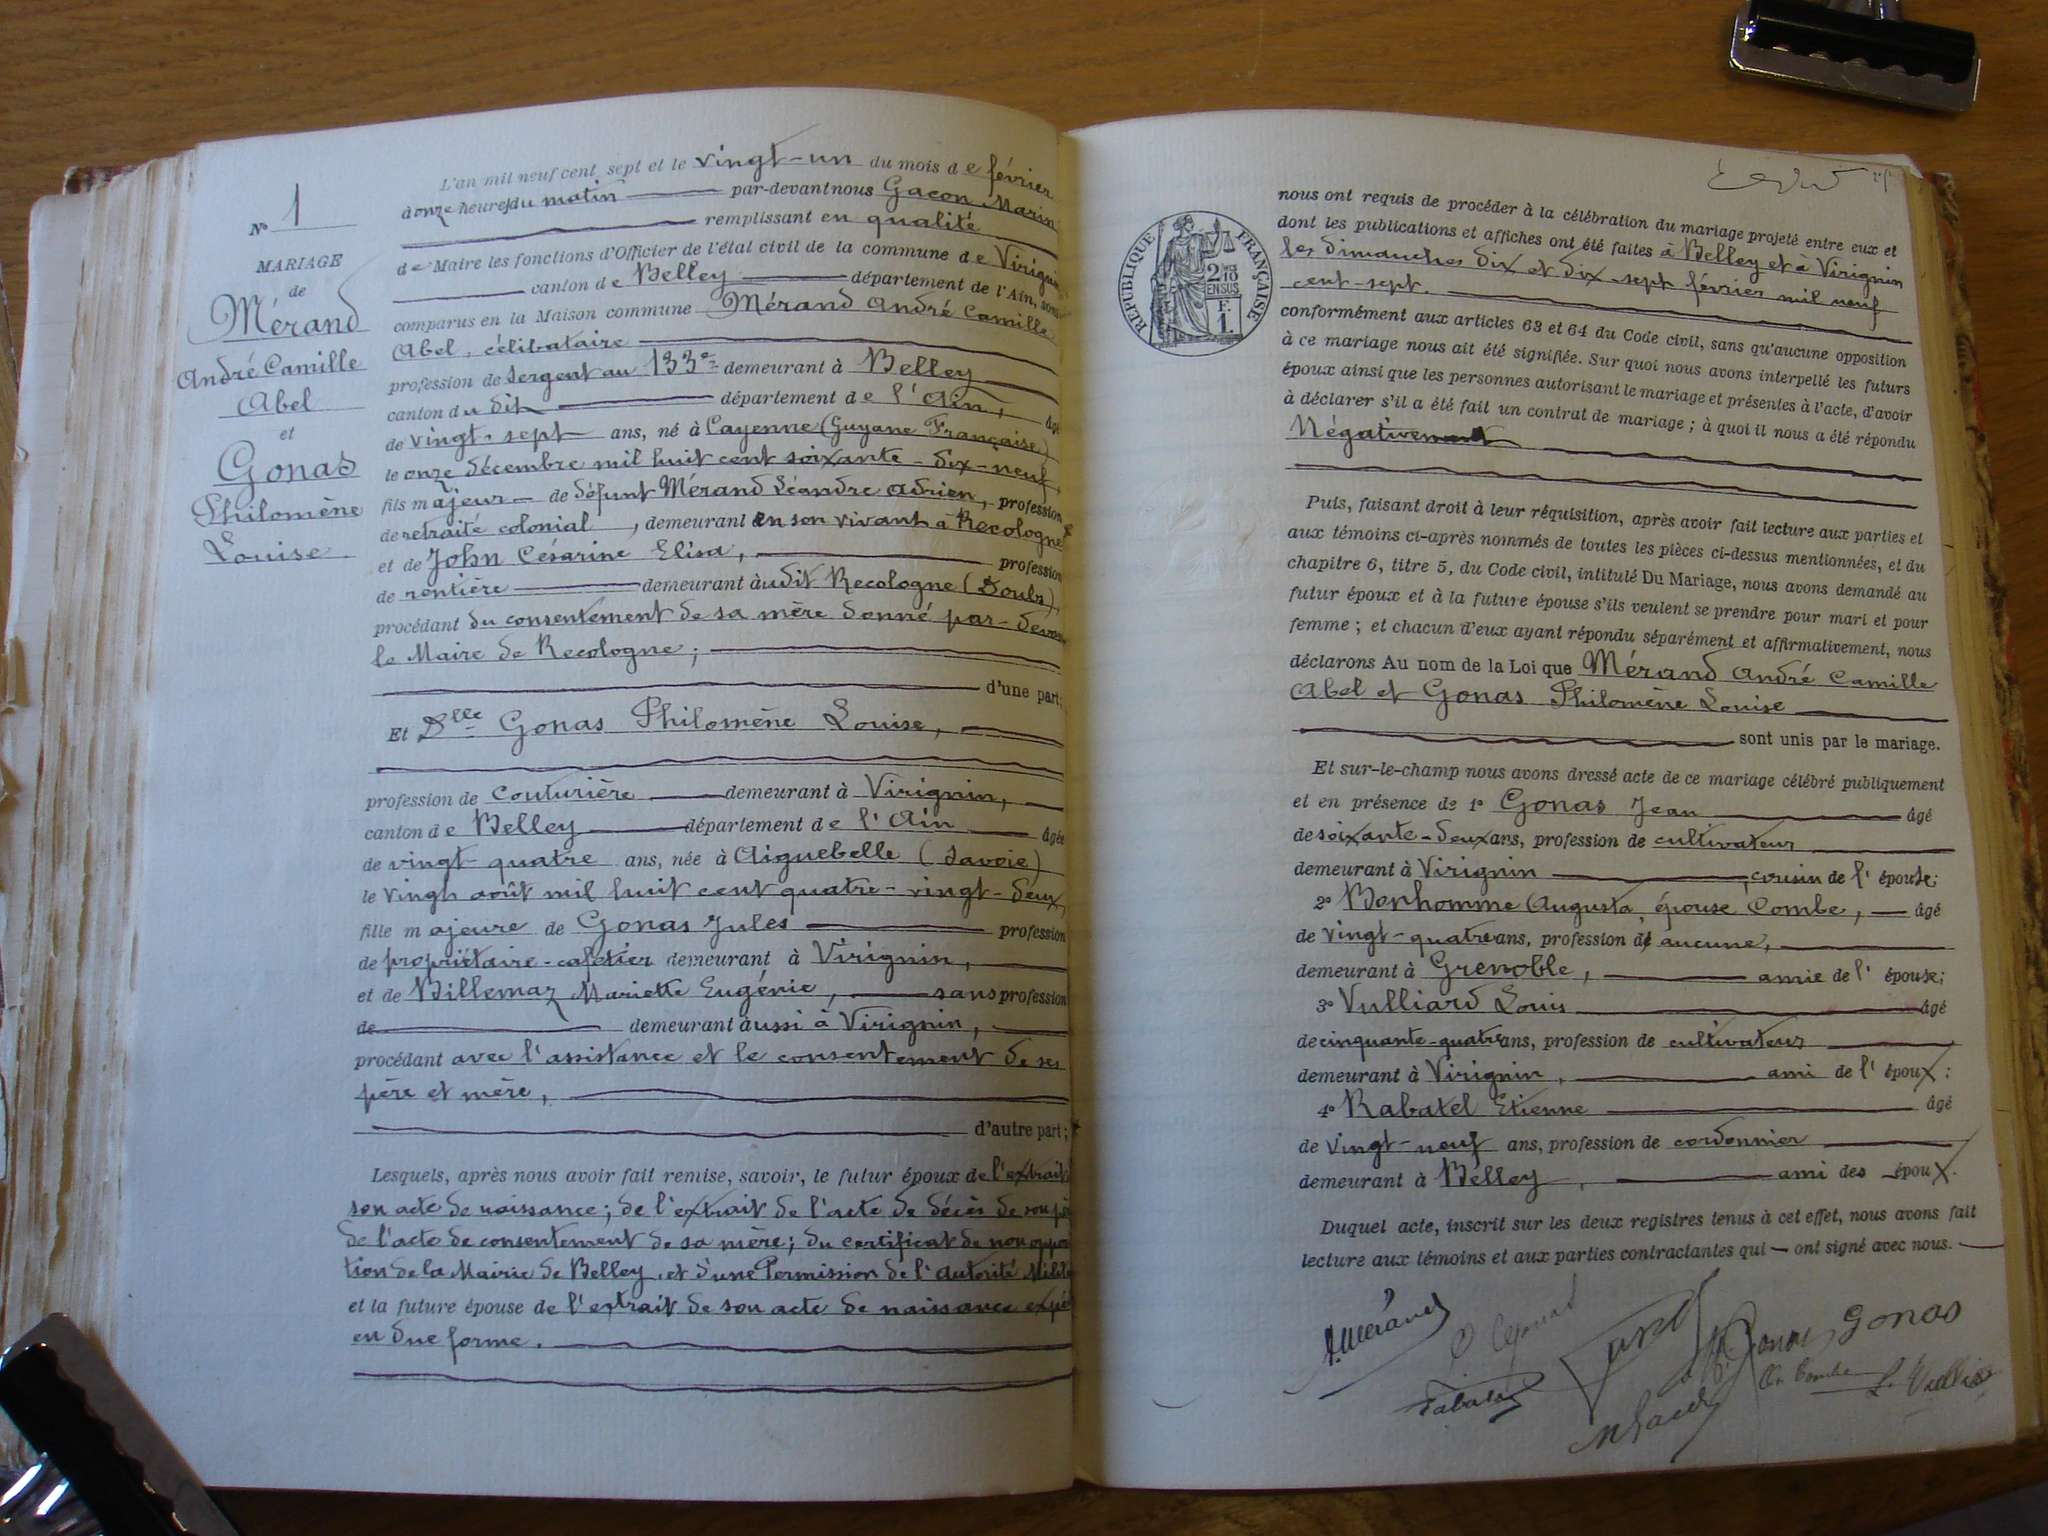 N° 1
MARIAGE
de
Mérand
André Camille
Abel
et
Gonas
Philomène
Louise
L'an mil neuf cent sept et le vingt-un du mois de février
à onze heures du matin par-devant nous Gacon Marin
remplissant en qualité
de Maire les fonctions d'Officier de l'état civil de la commune de Virignin
canton de Belley département de l'Ain, sont
comparus en la Maison commune Mérand André Camille
Abel, célibataire
profession de sergent au 133e demeurant à Belley
canton du dit département de l'Ain, âgé
de vingt-sept ans, né à Cayenne (Guyane Française)
le onze décembre mil huit cent soixante-dix-neuf,
fils majeur de défunt Mérand Léandre Adrien, profession
de retraité colonial, demeurant en son vivant à Recologne
et de John Césarine Elisa, profession
de rentière demeurant àudit Recologne (Doubs),
procédant du consentement de sa mère donné par-devant
le Maire de Recologne;
d'une part;
Et Dlle Gonas Philomène Louise,
profession de couturière demeurant à Virignin,
canton de Belley département de l'Ain âgée
de vingt-quatre ans, née à Aiguebelle (Savoie)
le vingt août mil huit cent quatre-vingt-deux,
fille majeure de Gonas Jules profession
de propriétaire-cafetier demeurant à Virignin,
et de Billemaz Mariette Eugénie, sans profession
de demeurant àussi à Virignin,
procédant avec l'assistance et le consentement de ses
père et mère,
d'autre part;
Lesquels, après nous avoir fait remise, savoir, le futur époux de l'extrait
son acte de naissance; de l'extrait de l'acte de décès de son
de l'acte de consentement de sa mère; du certificat de non oppo
tion de la Mairie de Belley, et d'une Permission de l'Autorité Milit
et la future épouse de l'extrait de son acte de naissance expé
en due forme.
RÉPUBLIQUE FRANÇAISE
2/10 EN SUS
F. 1.
nous ont requis de procéder à la célébration du mariage projeté entre eux et
dont les publications et affiches ont été faites à Belley et à Virignin
les dimanches dix et dix-sept février mil neuf
cent-sept.
conformément aux articles 63 et 64 du Code civil, sans qu'aucune opposition
à ce mariage nous ait été signifiée. Sur quoi nous avons interpellé les futurs
époux ainsi que les personnes autorisant le mariage et présentes à l'acte, d'avoir
à déclarer s'il a été fait un contrat de mariage; à quoi il nous a été répondu
Négativement
Puis, faisant droit à leur réquisition, après avoir fait lecture aux parties et
aux témoins ci-après nommés de toutes les pièces ci-dessus mentionnées, et du
chapitre 6, titre 5, du Code civil, intitulé Du Mariage, nous avons demandé au
futur époux et à la future épouse s'ils veulent se prendre pour mari et pour
femme; et chacun d'eux ayant répondu séparément et affirmativement, nous
déclarons Au nom de la Loi que Mérand André Camille
Abel et Gonas Philomène Louise
sont unis par le mariage.
Et sur-le-champ nous avons dressé acte de ce mariage célébré publiquement
et en présence de 1° Gonas Jean âgé
de soixante-deux ans, profession de cultivateur
demeurant à Virignin, cousin de l'épouse;
2° Bonhomme Augusta, épouse Combe, âgé
de vingt-quatre ans, profession de aucune,
demeurant à Grenoble, amie de l'épouse;
3° Vulliard Louis âgé
de cinquante-quatre ans, profession de cultivateur
demeurant à Virignin, ami de l'époux;
4° Rabatel Etienne âgé
de vingt-neuf ans, profession de cordonnier
demeurant à Belley, ami des époux.
Duquel acte, inscrit sur les deux registres tenus à cet effet, nous avons fait
lecture aux témoins et aux parties contractantes qui ont signé avec nous.
A. Mérand
Gonas
Rabatel